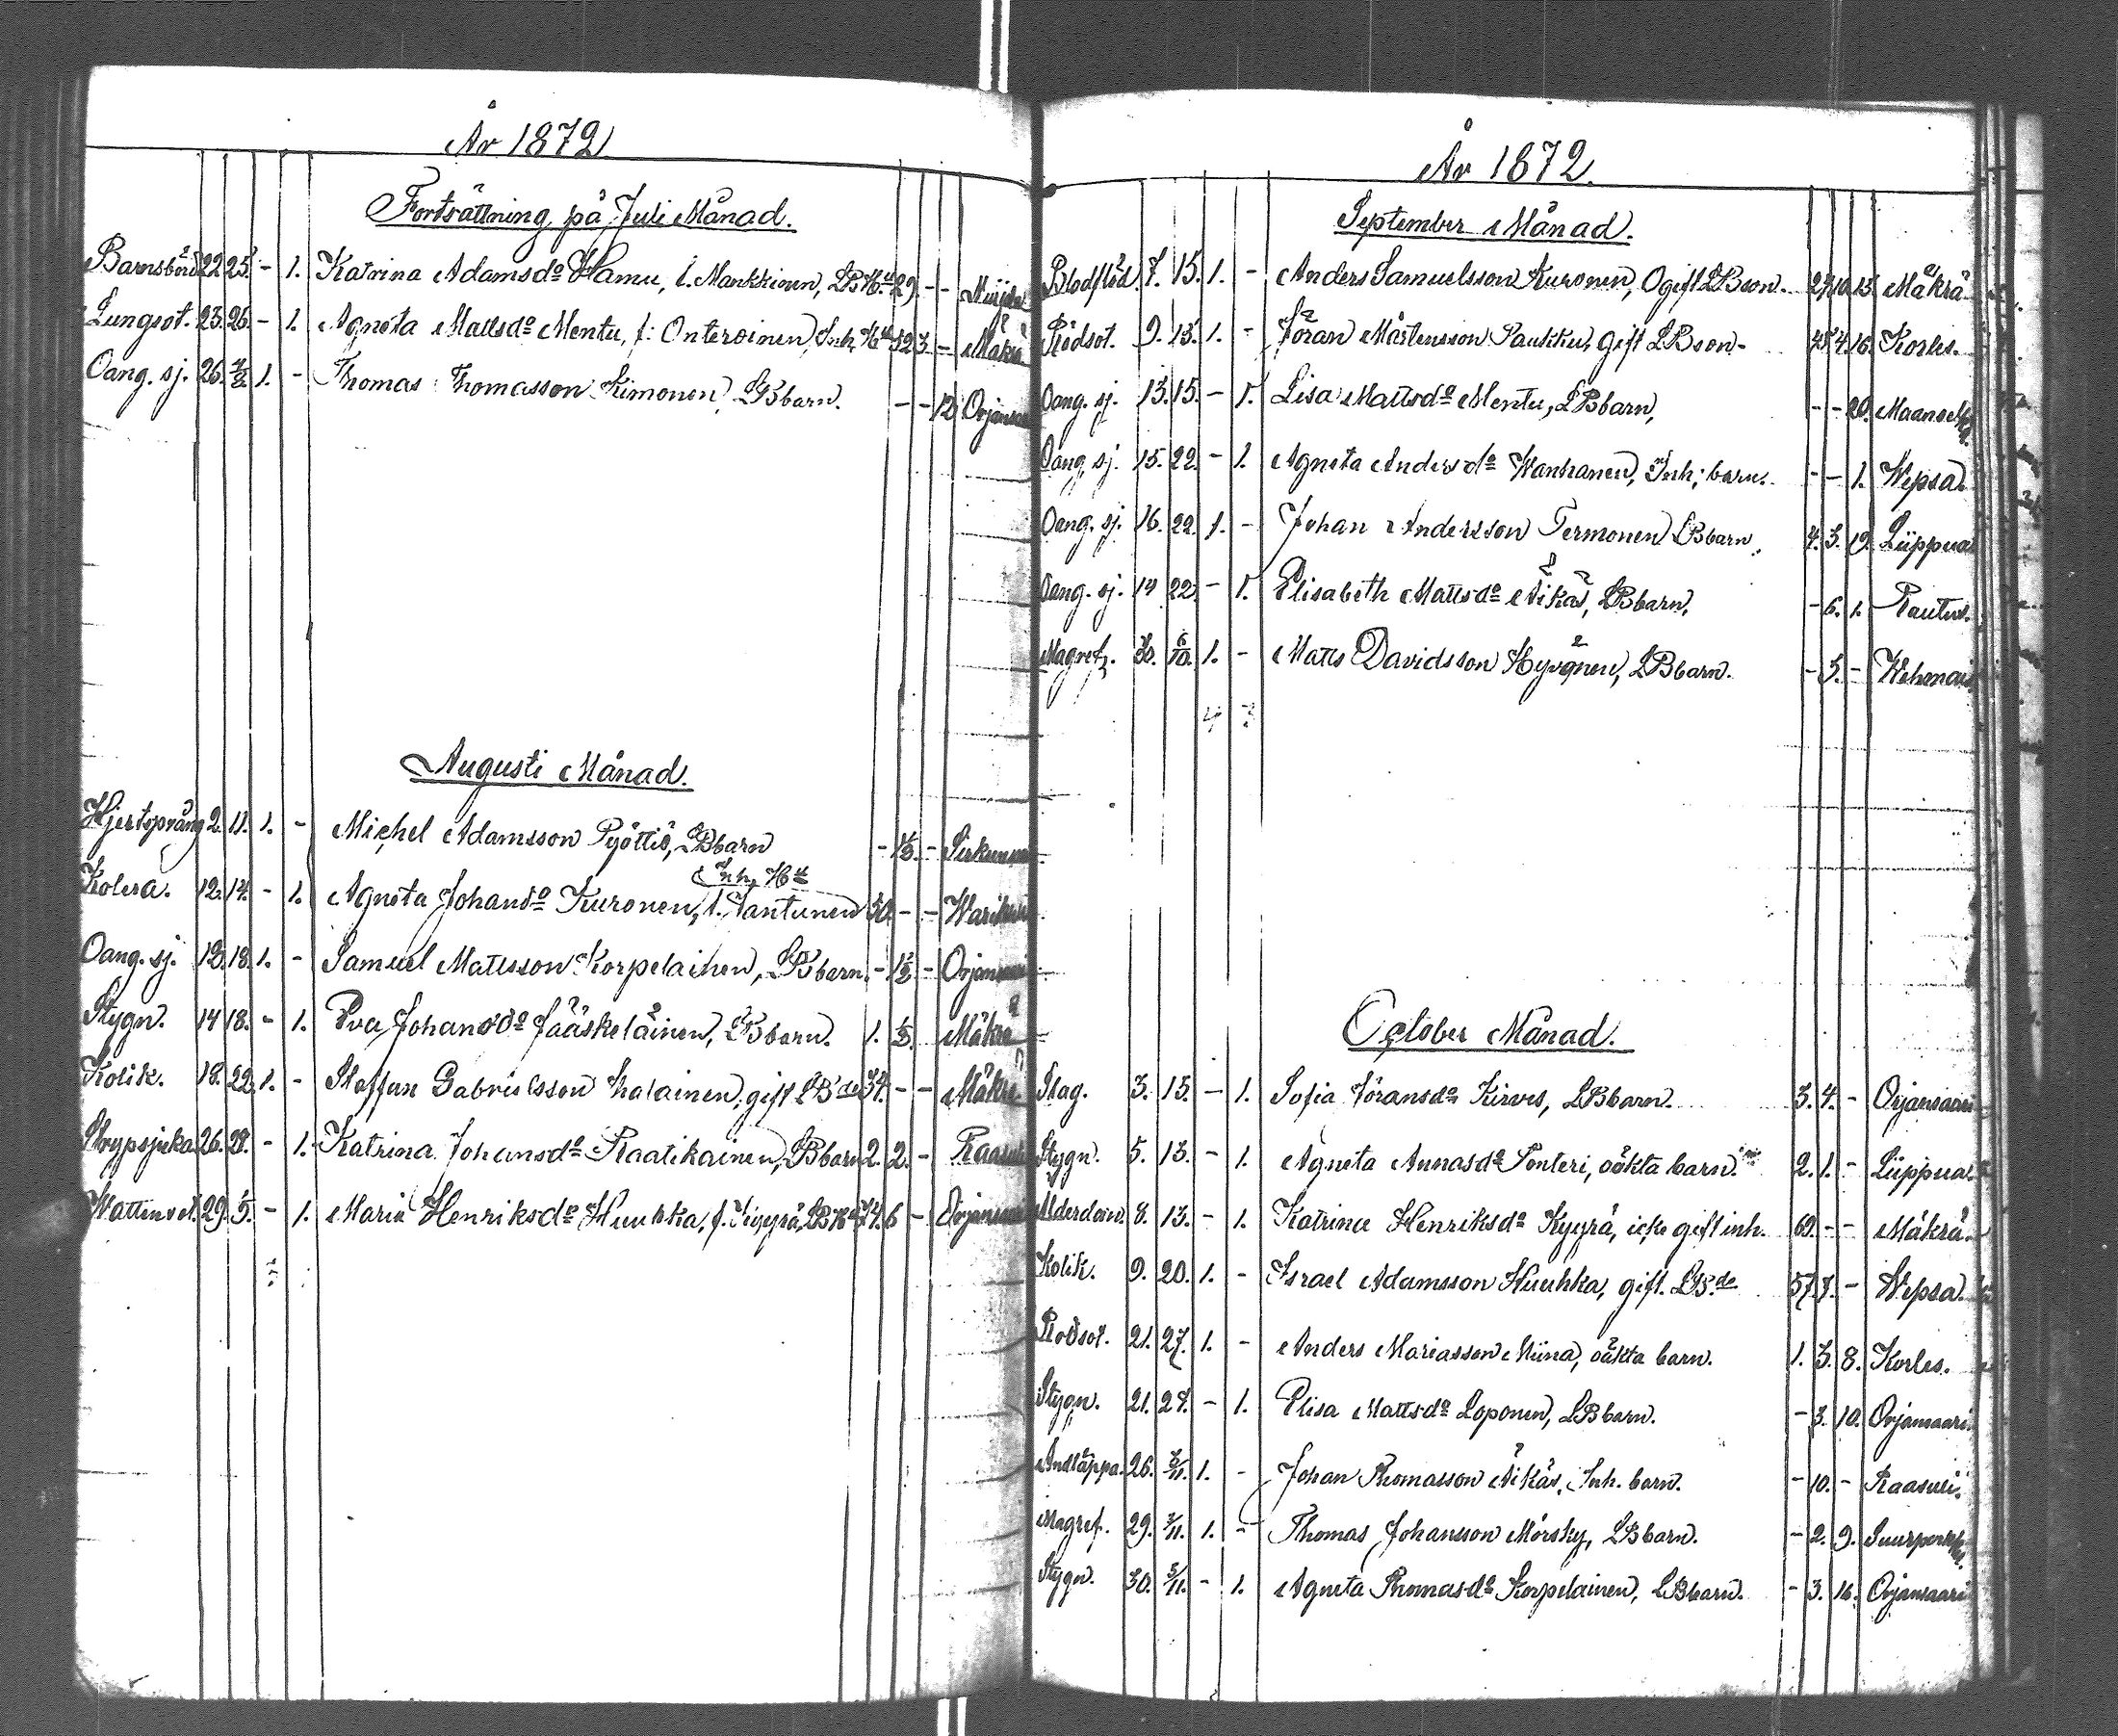 År 1872
Fortsättning på Juli Månad.
Barnsbörd 22. 25. - 1. Katrina Adamsdo Hamu, f. Mankkinen, LBHu 29. - -
Lungsot. 23. 26. - 1. Agneta Mattsdo Mentu, f: Onteroinen, Inh. Hu 52 3. - Mäkrä
Oang. sj. 26. 1. - Thomas Thomasson Kimonen, LBbarn. - - 12 Orjansaari
Augusti Månad.
Hjertsprång 2. 11. 1. - Michel Adamsson Pyöttiö, LBbarn - 1/2. -
Inh. Hu
Kolera. 12. 14. - 1. Agneta Johansdo Kuronen, f. Tantunen 50. - -
Oang. sj. 12. 18. 1. - Samuel Mattsson Korpelainen, LBbarn. - 1/2 - Orjansaari
Stygn. 14 18. - 1. Eva Johansdo Jääskeläinen, LBbarn. 1. 1/2. Mäkrä
Kolik. 18. 22. 1. - Staffan Gabrielsson Ihalainen, gift LBde 34. - - Mäkrä
Strypsjuka 26. 28. - 1. Katrina Johansdo Raatikainen, LBbarn 2. 2. - Raasuli
Wattensot. 29. - 1. Maria Henriksdo Huuhka, f. Kiyyrä, LBHu 74. 6 - Orjansaari
År 1872.
September Månad.
Blodflöd. 7. 15. 1. - Anders Samuelsson Kuronen, Ogift LBson. 27. 10. 13. Mäkrä.
Rödsot. 9. 15. 1. - Jöran Mårtensson Paukku, gift LBson - 45. 4. 16. Korles.
Oang. sj. 13. 15. - 1. Lisa Mattsdo Mentu, LBbarn, - - 20. Maanselkä.
Oang. sj. 15. 22. - 1. Agneta Andersdo Wanhanen, Inh: barn. - - 1. Wepsa.
Oang. sj. 16. 22. 1. - Johan Andersson Termonen LBbarn. 4. 3. 19. Liippua
Oang. sj. 19 22. - 1. Elisabeth Mattsdo Äikäs, LBbarn, - 6. 1. Rautus.
Magref. 30. 6/10. 1. - Matts Davidsson Hyvönen, LBbarn. - 3. - Wehmais
4 3
October Månad.
Slag. 3. 13. - 1. Sofia Jöransdo Kirves, LBbarn. 3. 4. - Orjansaari
Stygn. 5. 13. - 1. Agneta Annasdo Ponteri, oäkta barn. 2. 1. - Liippua.
Ålderdom. 8. 13. - 1. Katrina Henriksdo Kyyrä, icke gift inh. 69. - - Mäkrä.
Kolik. 9. 20. 1. - Israel Adamsson Huuhka, gift. LBde 57. 7. - Wepsa.
Rödsot. 21. 27. 1. - Anders Mariasson Miina, oäkta barn. 1. 3. 8. Korles.
Stygn. 21. 27. - 1. Elisa Mattsdo Loponen, LBbarn. - 3. 10. Orjansaari.
Andtäppa. 26. 3/11. 1. - Johan Thomasson Äikäs, Inh. barn. - 10. - Raasuli.
Magref. 29. 3/11. 1. - Thomas Johansson Mörsky, LBbarn. - 2. 9.
Stygn. 30. 3/11. - 1. Agneta Thomasdo Korpelainen, LBbarn. - 3. 16. Orjansaari